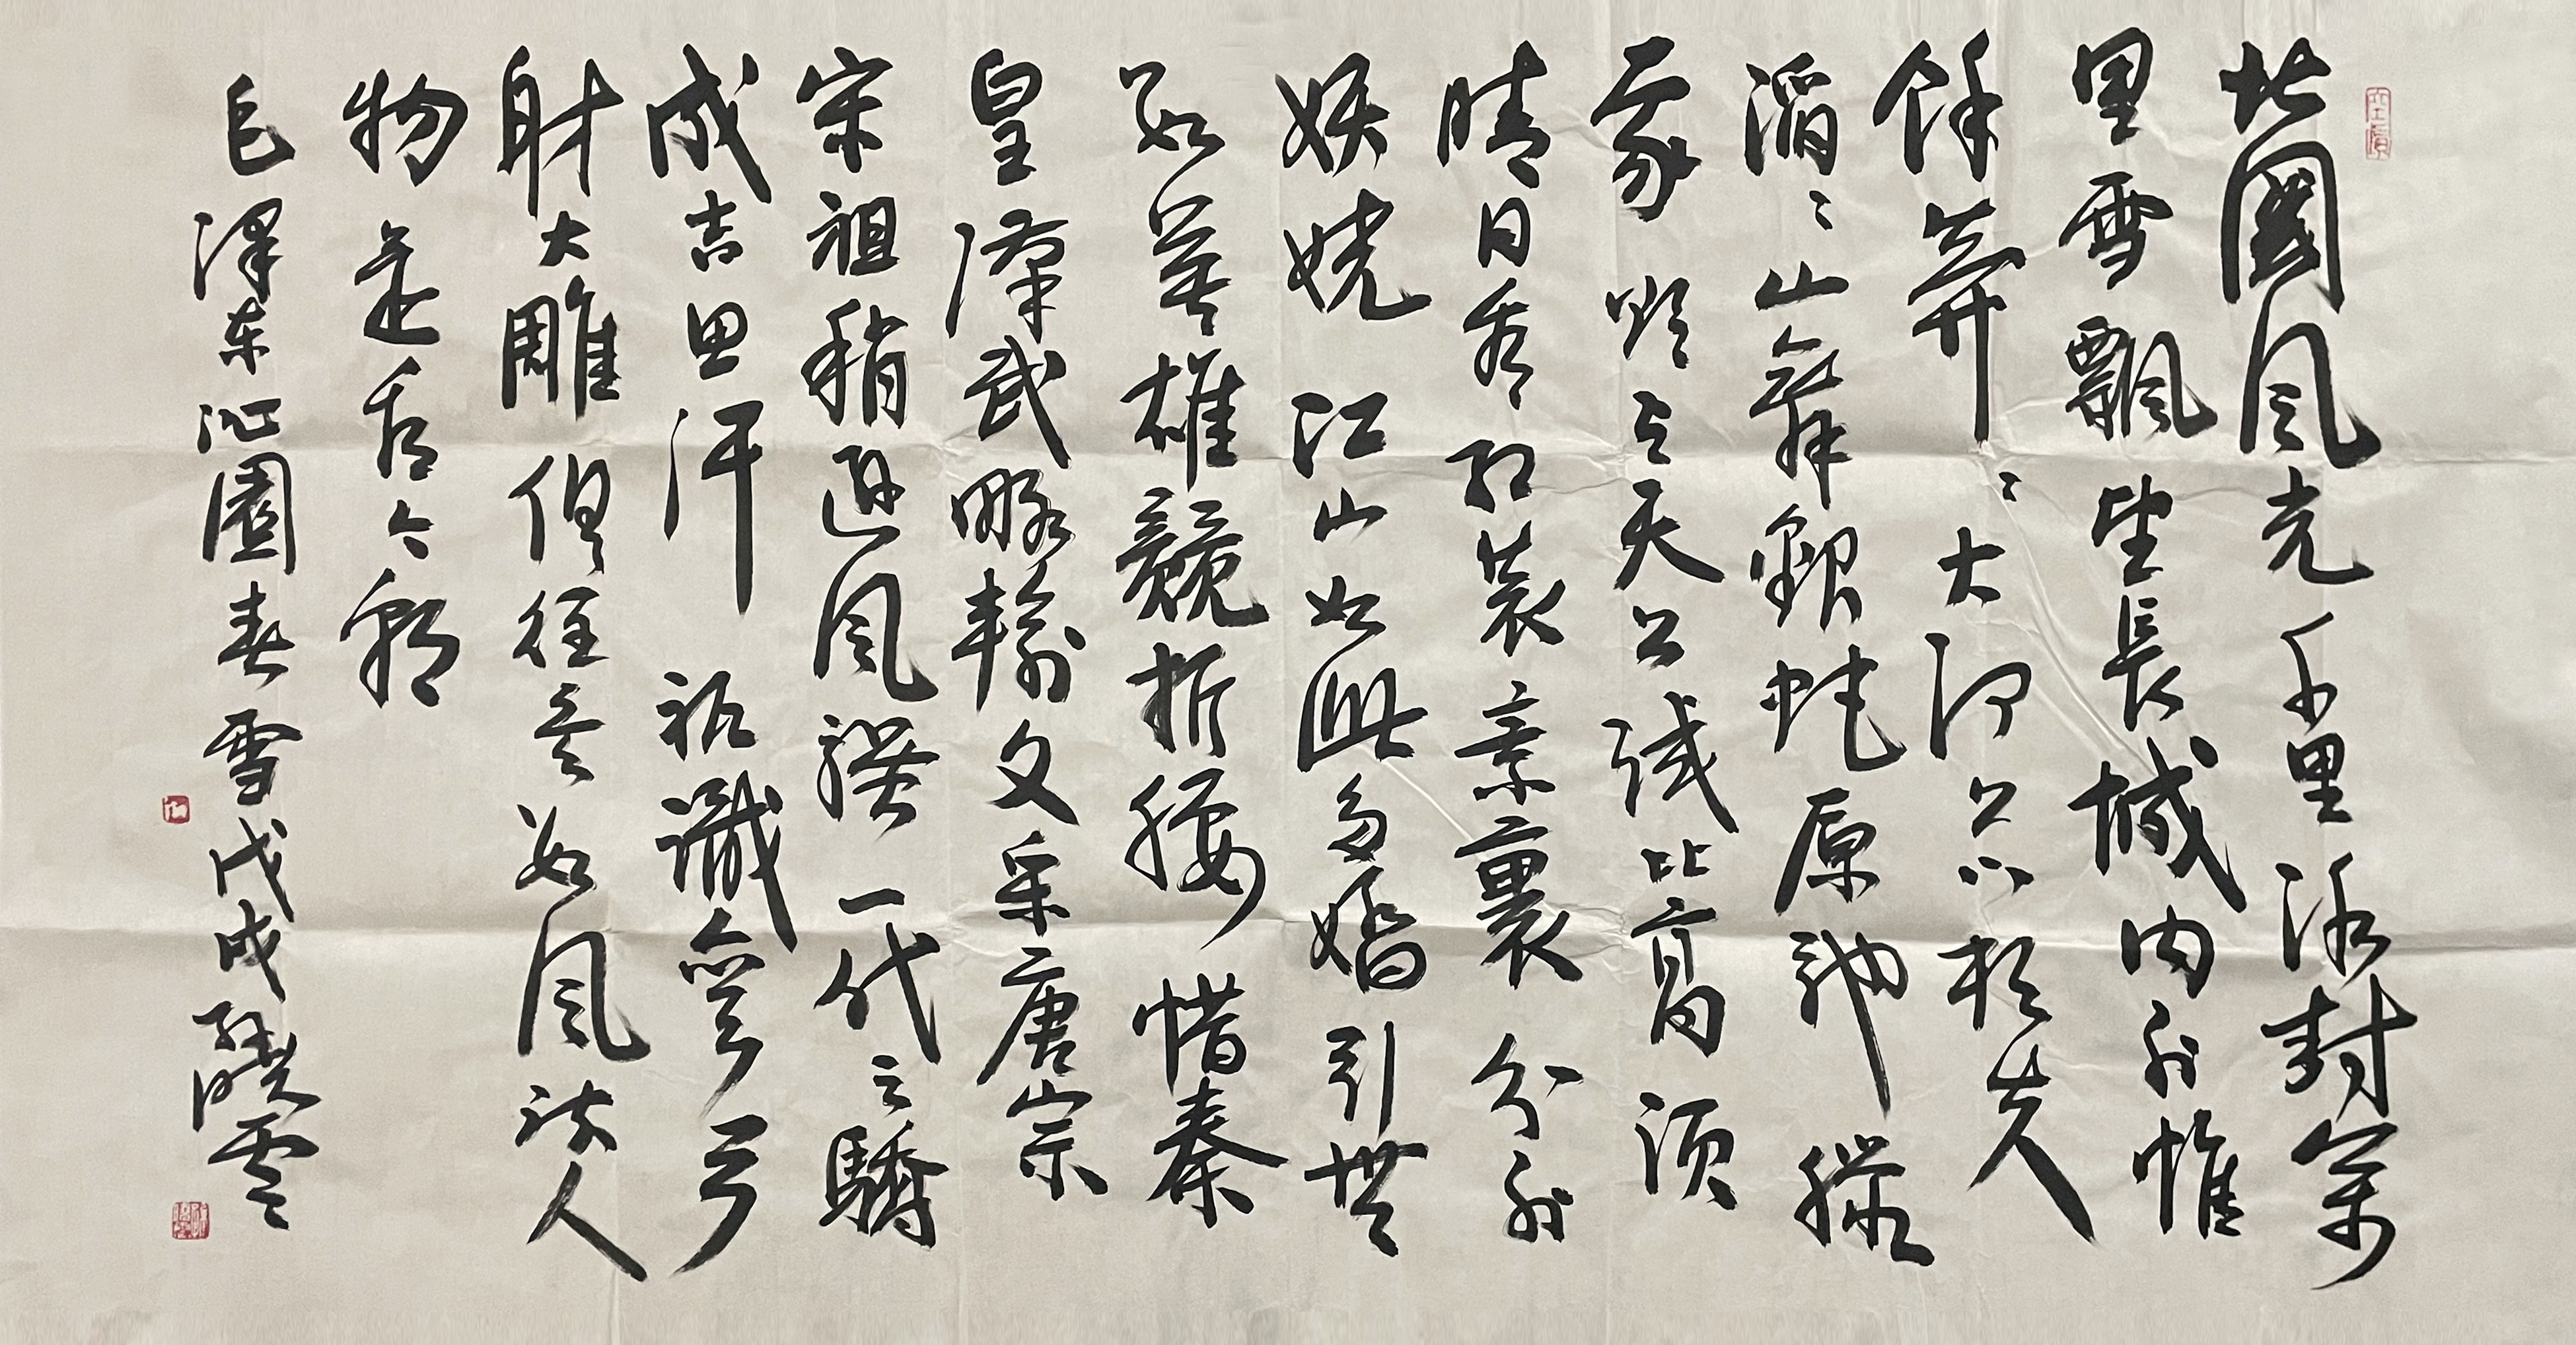 北國風光千里冰封萬
里雪飄望長城内外惟
餘莽〻大河上下頓失
滔〻山舞銀蛇原馳臘
象欲與天公試比高須
晴日看紅裝素裹分外
妖嬈江山如此多嬌引無
數英雄競折腰惜秦
皇漢武略輸文采唐宗
宋祖稍遜風騷一代之驕
成吉思汗祗識彎弓
射大雕俱往矣數風流人
物還看今朝
毛澤东沁園春雪戊戌孫曉雲